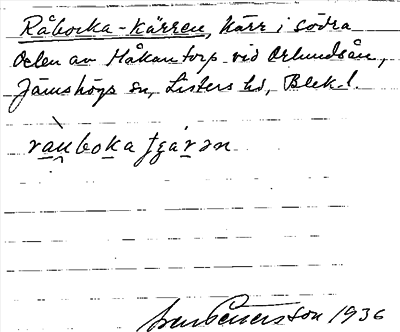 Råbocka-kärren, kärr i södra
delen av Håkantorp vid Orlundsån,
Jämshögs sn, Listers hd, Blek. l.
Sven Benson 1936